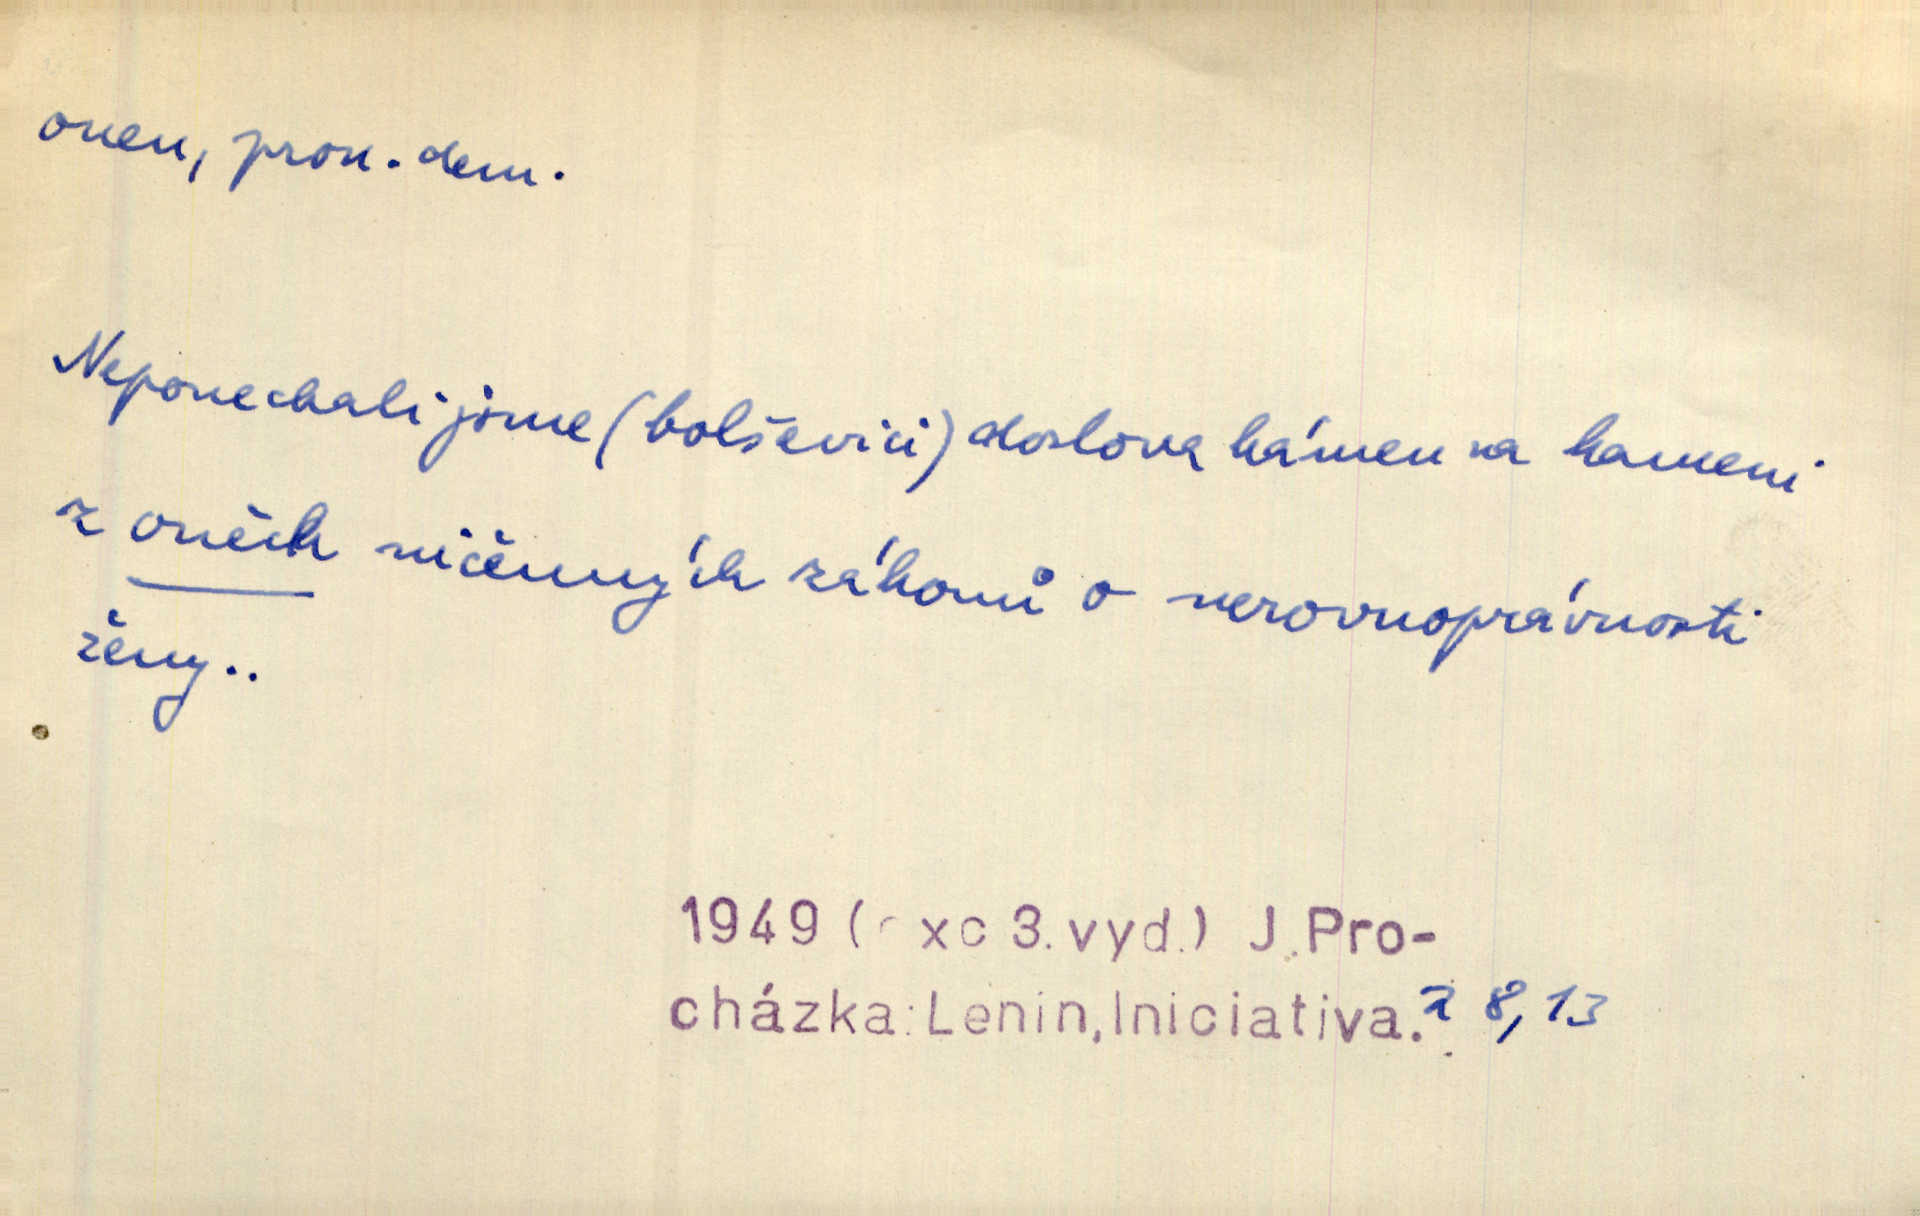 onen, pron. dem.
Neponechali jsme (bolševici) doslova kámen na kameni
z oněch ničemných zákonů o nerovnoprávnosti
ženy..
1949 ( xc 3. vyd.) J. Pro-
cházka: Lenin, Iniciativa. 8, 13